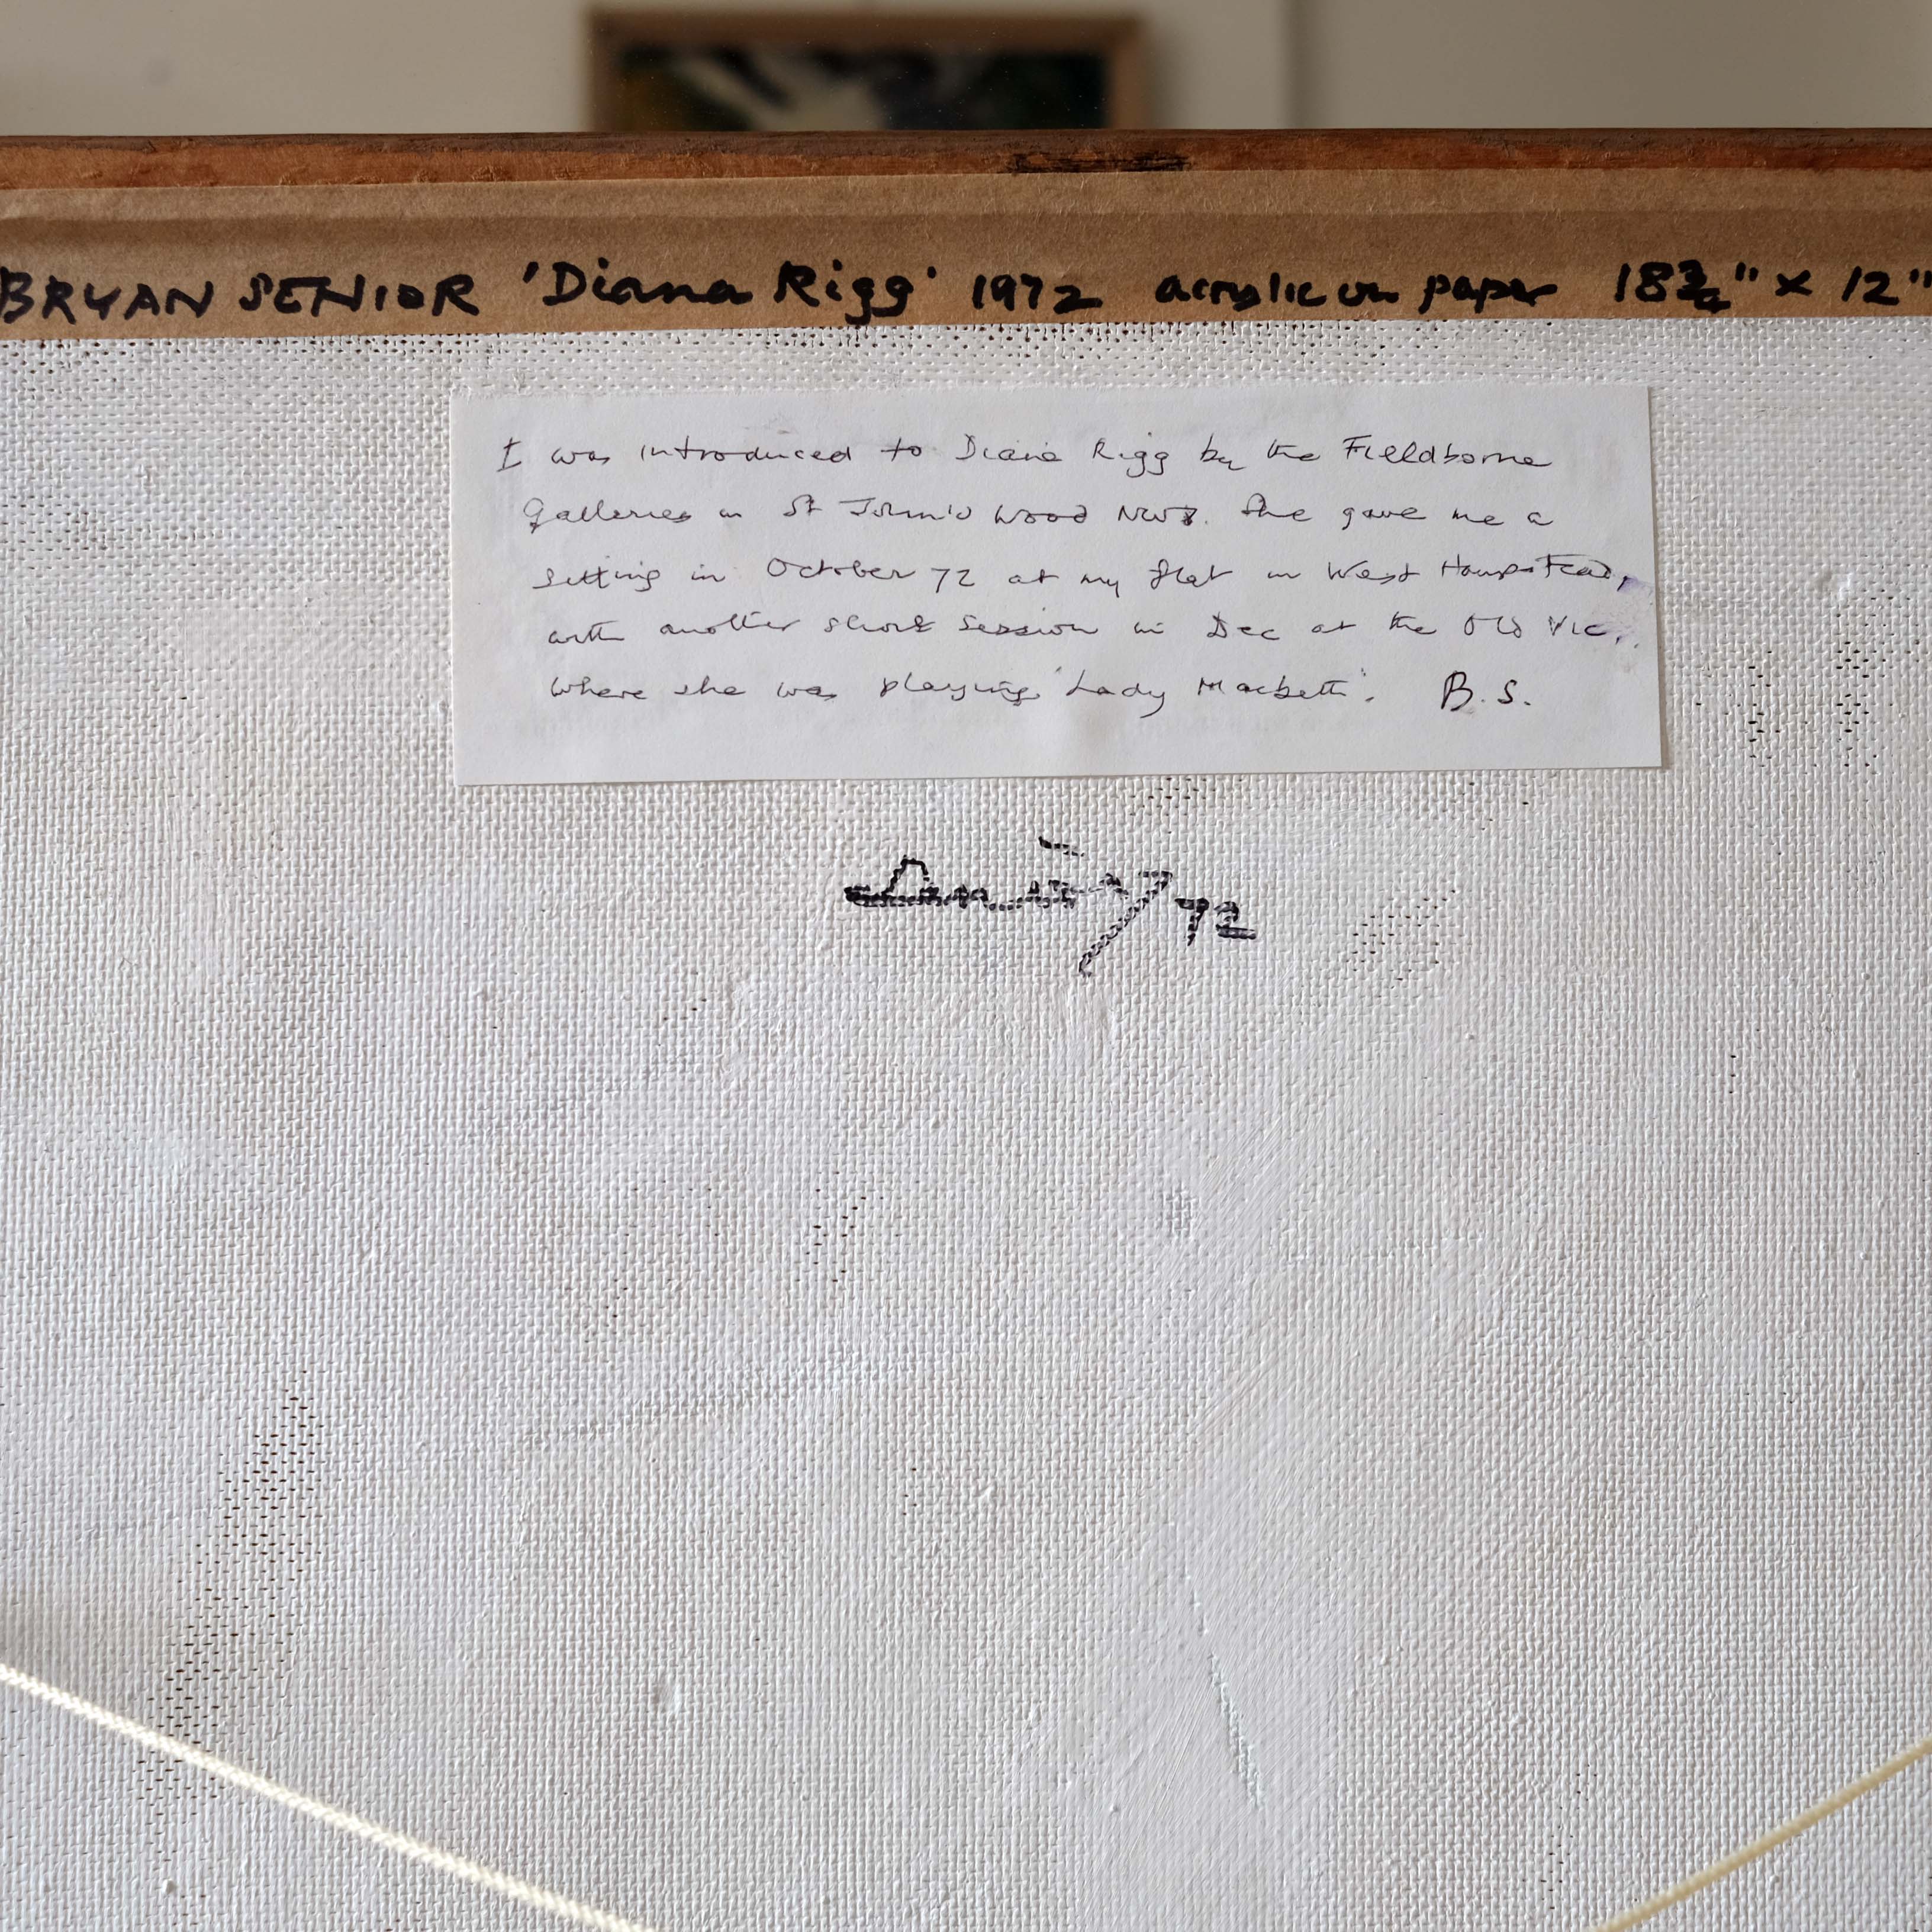 BRYAN SENIOR 'Diana Rigg' 1972 acrylic on paper 18¾" x 12"
I was introduced to Diana Rigg by the Fieldborne
Galleries in St John's Wood NW8. She gave me a
sitting in October 72 at my flat in West Hampstead,
with another short session in Dec at the Old Vic,
where she was playing 'Lady Macbeth'. B.S.
72